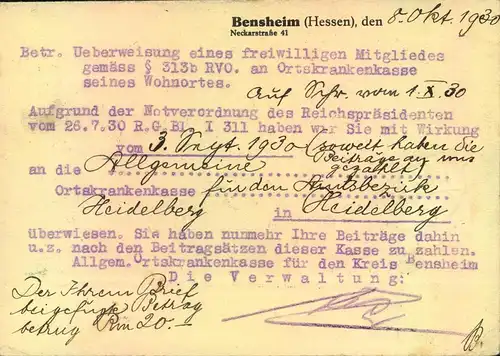 Bensheim (Hessen), den 8. Okt. 1930
Neckarstraße 41
Betr. Ueberweisung eines freiwilligen Mitgliedes
gemäss § 313b RVO. an Ortskrankenkasse
seines Wohnortes.
Auf Schr. vom 1.X.30
Aufgrund der Notverordnung des Reichspräsidenten
vom 26.7.30 R.G.Bl. I 311 haben wir Sie mit Wirkung
vom 3. Sept. 1930 (soweit haben Sie
Beiträge an uns
gezahlt)
an die Allgemeine
Ortskrankenkasse für den Amtsbezirk
Heidelberg in Heidelberg
überwiesen. Sie haben nunmehr Ihre Beiträge dahin
u.z. nach den Beitragsätzen dieser Kasse zu zahlen.
Allgem. Ortskrankenkasse für den Kreis Bensheim
Die Verwaltung:
Der Ihrem Brief
beigefügte Betrag
betrug Rm 20.—